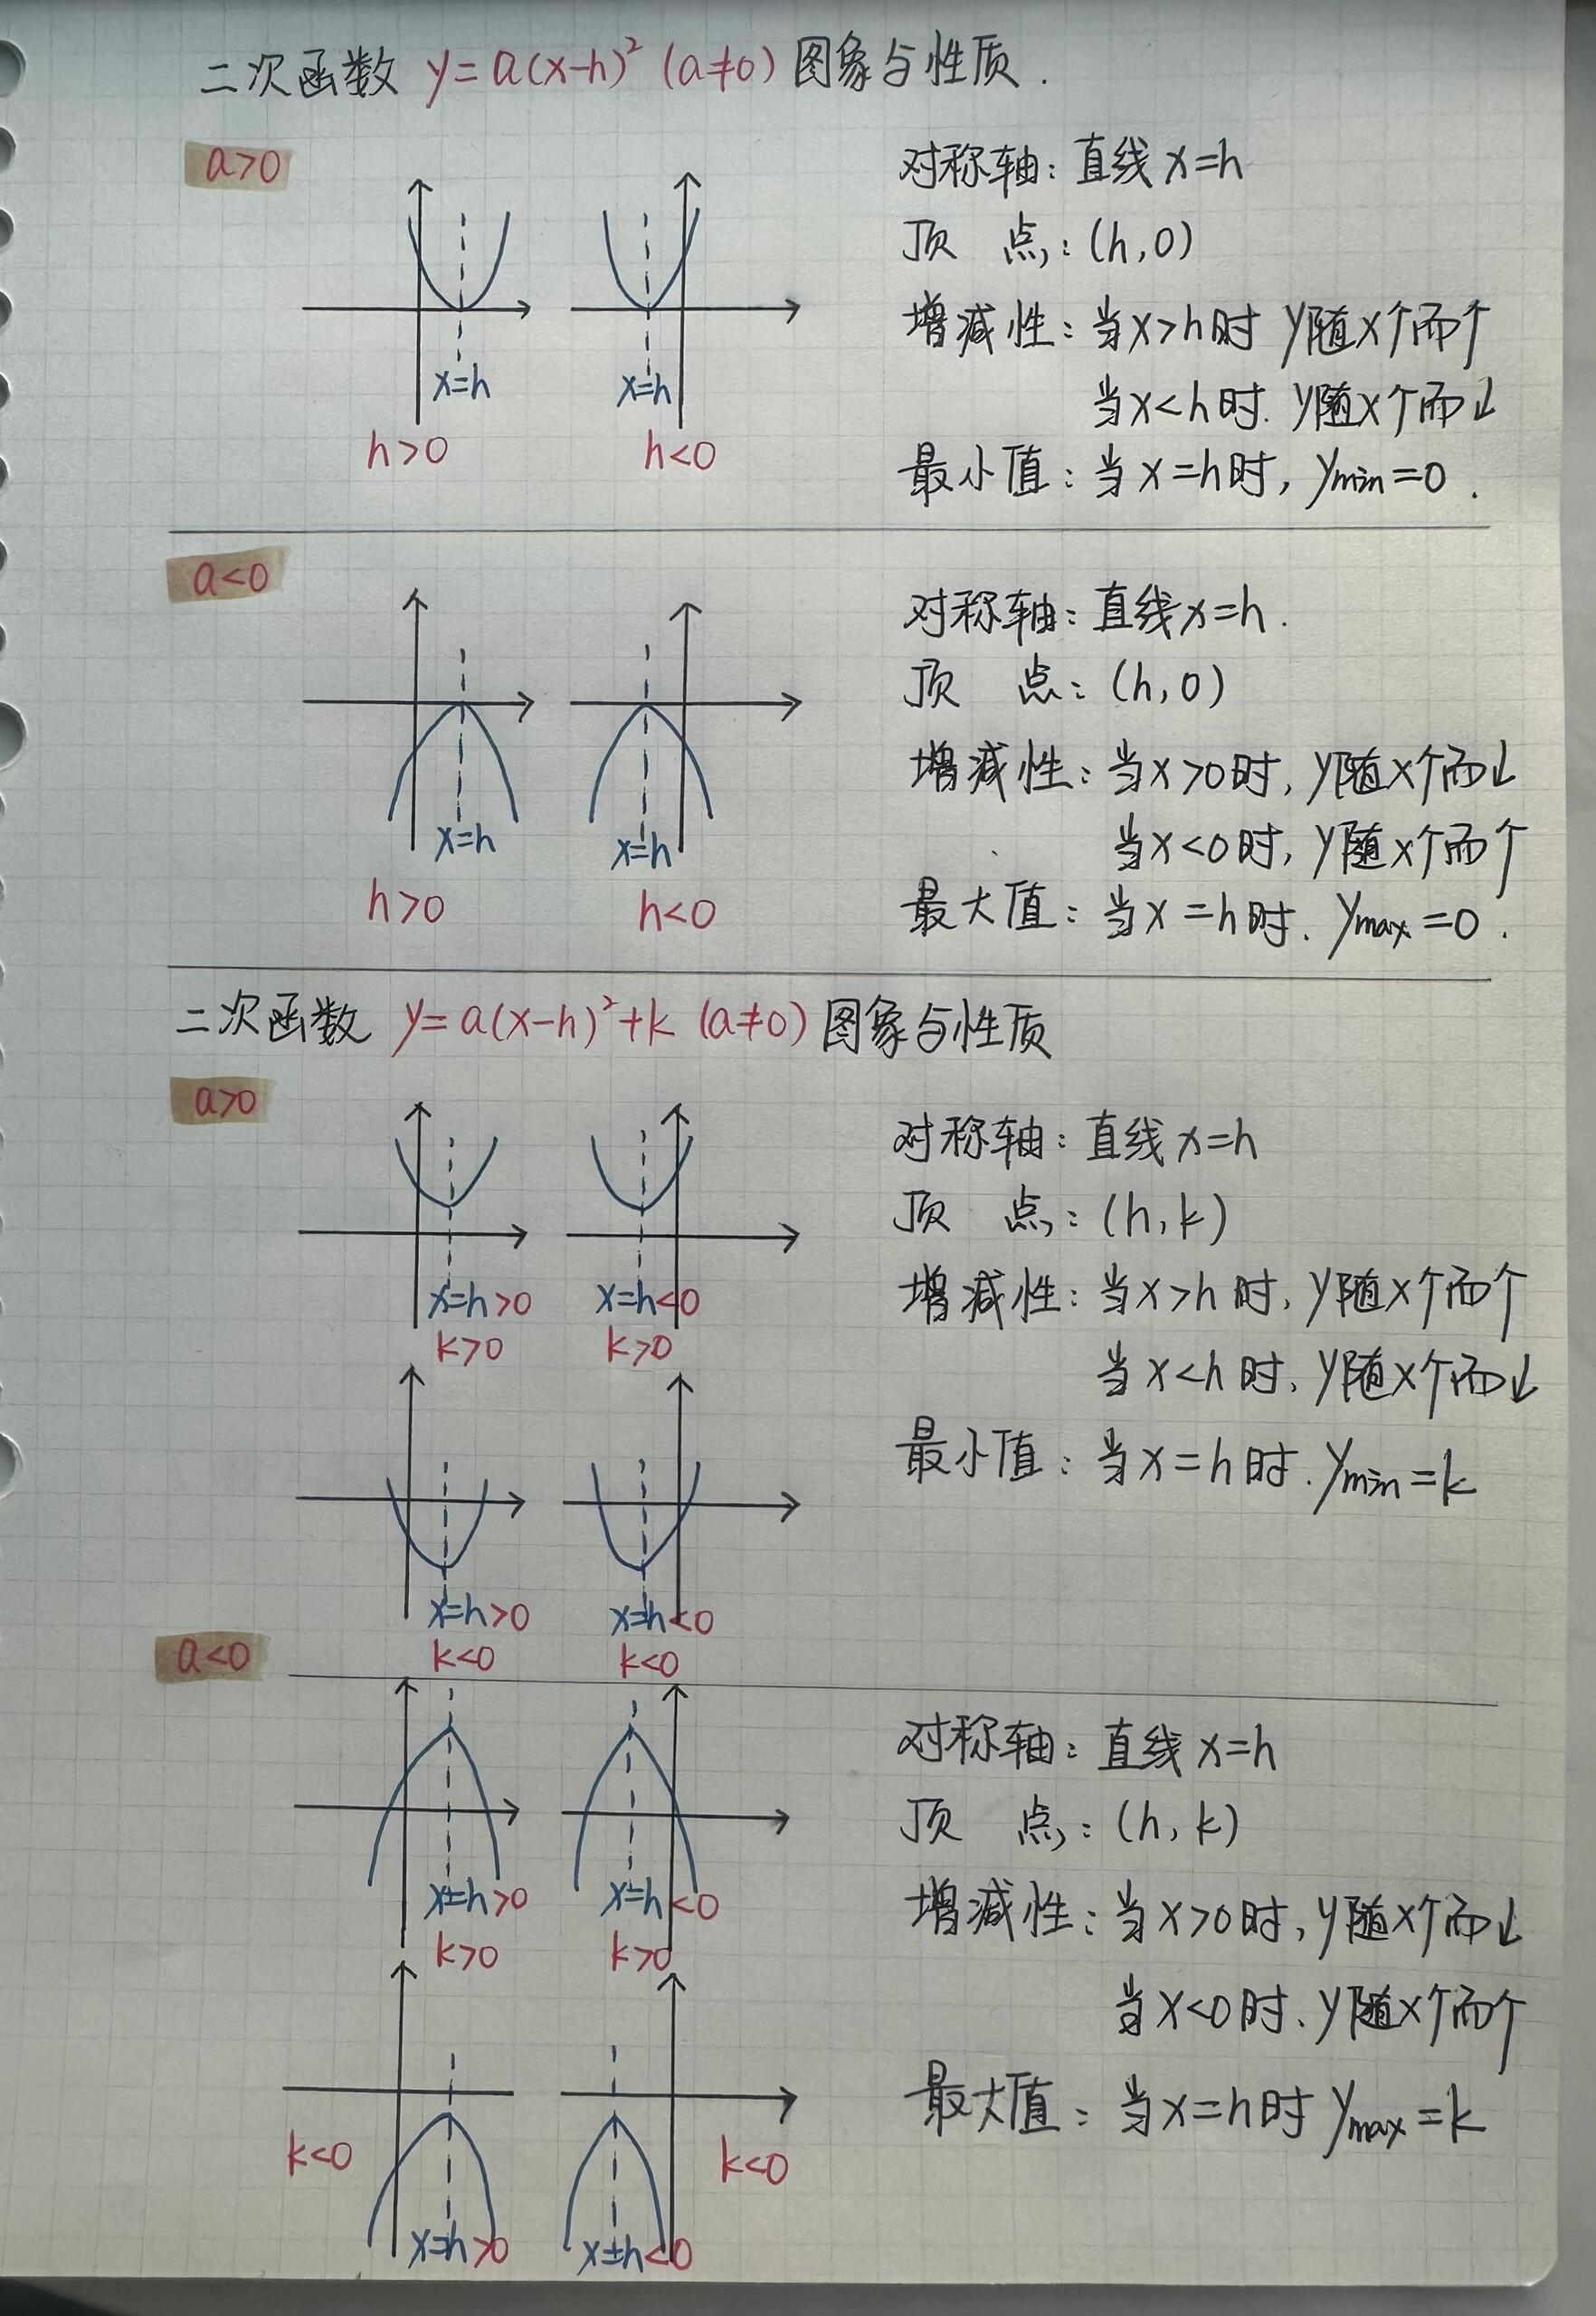 二次函数 y=a(x-h)² (a≠0) 图象与性质.
a>0
x=h
x=h
h>0
h<0
对称轴: 直线x=h
顶 点: (h,0)
增减性: 当x>h时 y随x↑而↑
当x<h时. y随x↑而↓
最小值: 当x=h时, ymin=0.
a<0
x=h
x=h
h>0
h<0
对称轴: 直线x=h.
顶 点: (h,0)
增减性: 当x>0时, y随x↑而↓
当x<0时, y随x↑而↑
最大值: 当x=h时. ymax=0.
二次函数 y=a(x-h)²+k (a≠0) 图象与性质
a>0
x=h>0
k>0
x=h<0
k>0
x=h>0
k<0
x=h<0
k<0
对称轴: 直线x=h
顶 点: (h,k)
增减性: 当x>h时, y随x↑而↑
当x<h时, y随x↑而↓
最小值: 当x=h时. ymin=k
a<0
x=h>0
k>0
x=h<0
k>0
k<0
x=h>0
x=h<0
k<0
对称轴: 直线x=h
顶 点: (h,k)
增减性: 当x>0时, y随x↑而↓
当x<0时、y随x↑而↑
最大值: 当x=h时 ymax=k